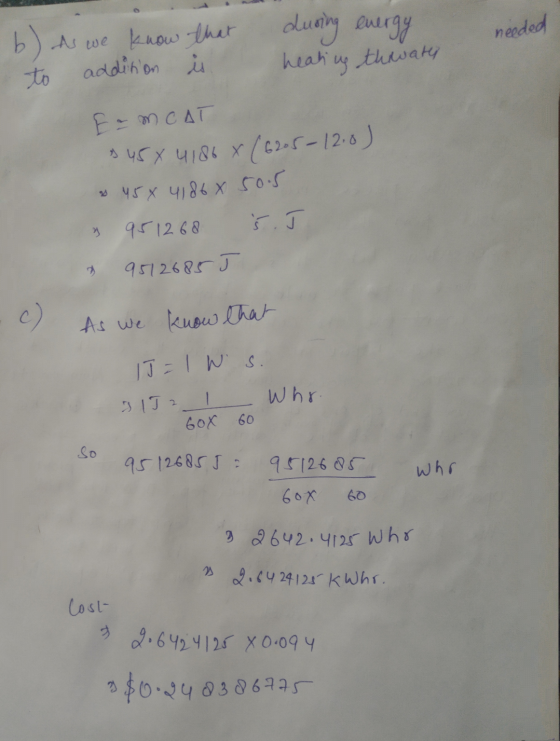 b) As we know that during energy needed
to addition is heating thwater
E = mcΔT
⇒ 45 × 4186 × (62.5-12.0)
⇒ 45 × 4186 × 50.5
⇒ 951268 5. J
⇒ 9512685 J
c) As we know that
1J = 1 W s.
⇒ 1J = 1/60× 60 Whr.
So 9512685J = 9512685/60× 60 Whr
⇒ 2642.4125 Whr
⇒ 2.6424125 KWhr.
Cost
⇒ 2.6424125 ×0.094
⇒ $0.248386775